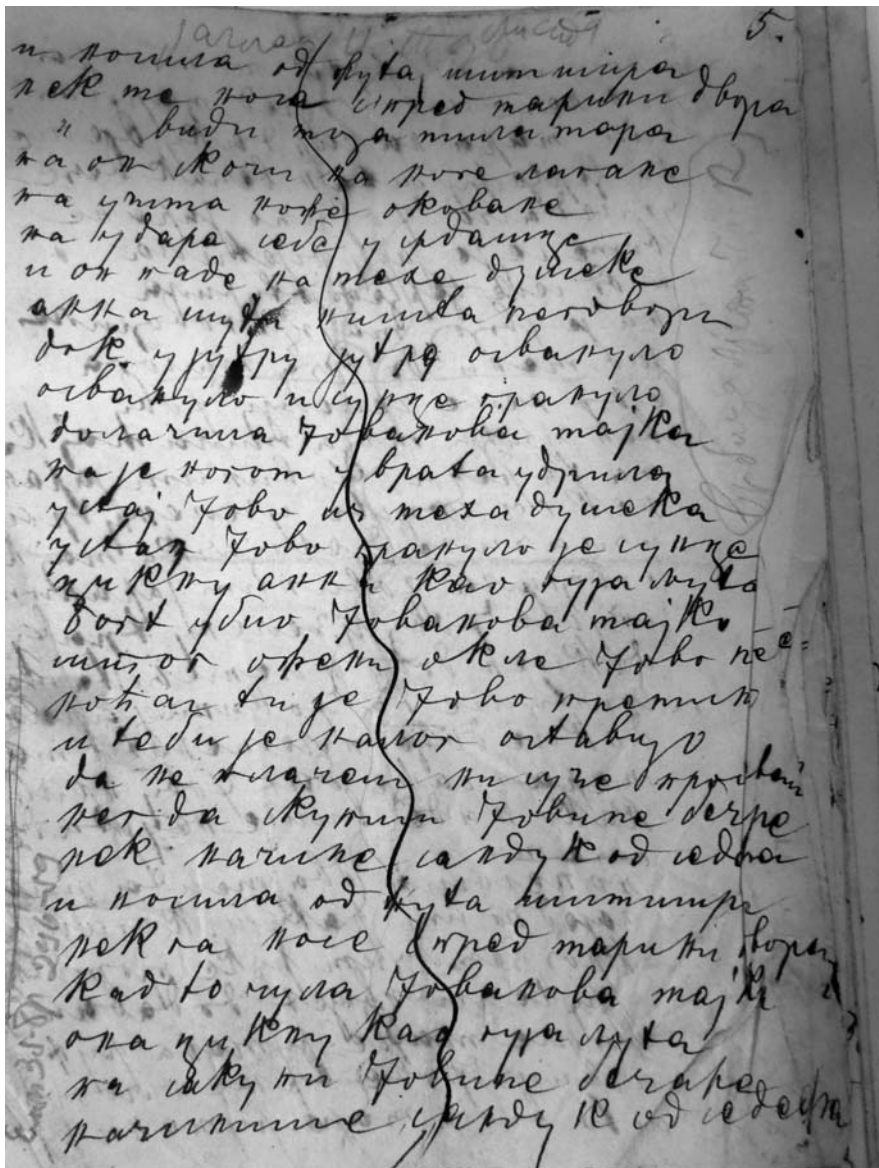 5.
и носила од жута шимшира
нек ме носе испред марини двора
и види моја мила мара
па он скочи на ноге лагане
па узма ноже оковане
па удара себе у срдашце
и он паде на меке душеке
анка шути ништа неговори
док у јутру јутро освануло
освануло и сунце грануло
долазила Јованова мајка
па је ногом у врата удрила
устај Јово из мека душека
устај Јово грануло је сунце
цикну анка као гуја љута
бог т убио Јованова мајко
што г ожени окле Јово неће
ноћаз ти је Јово премино
и теби је налог оставијо
да не плачеш ни сузе проливаш
нег да скупиш Јовине бећаре
нек начине сандук од седефа
и носила од жута шимшира
нек га носе испред марини двора
кад то чула Јованова мајка
она цикну као гуја љута
па сакупи Јовине бећаре
начинише сандук од седефа